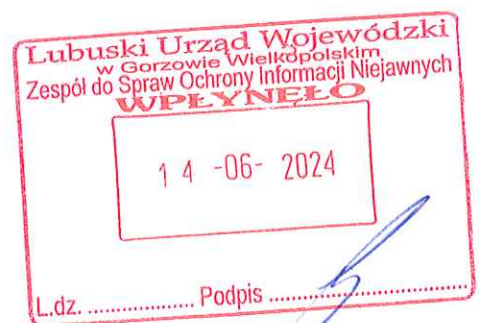 Lubuski Urząd Wojewódzki
w Gorzowie Wielkopolskim
Zespół do Spraw Ochrony Informacji Niejawnych
WPŁYNĘŁO
14 -06- 2024
L.dz. .................. Podpis ..............................